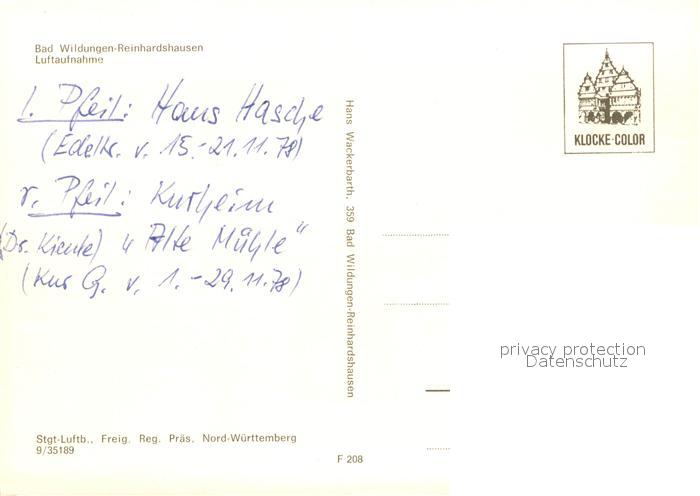 Bad Wildungen-Reinhardshausen
Luftaufnahme
l. Pfeil: Haus Hasche
(Edeltr. v. 15.-21.11.78)
r. Pfeil: Kurheim
(Dr. Kienle) "Alte Mühle"
(Kur G. v. 1.-29.11.78)
Stgt-Luftb., Freig. Reg. Präs. Nord-Württemberg
9/35189
F 208
Hans Wackerbarth, 359 Bad Wildungen-Reinhardshausen
KLOCKE-COLOR
privacy protection
Datenschutz